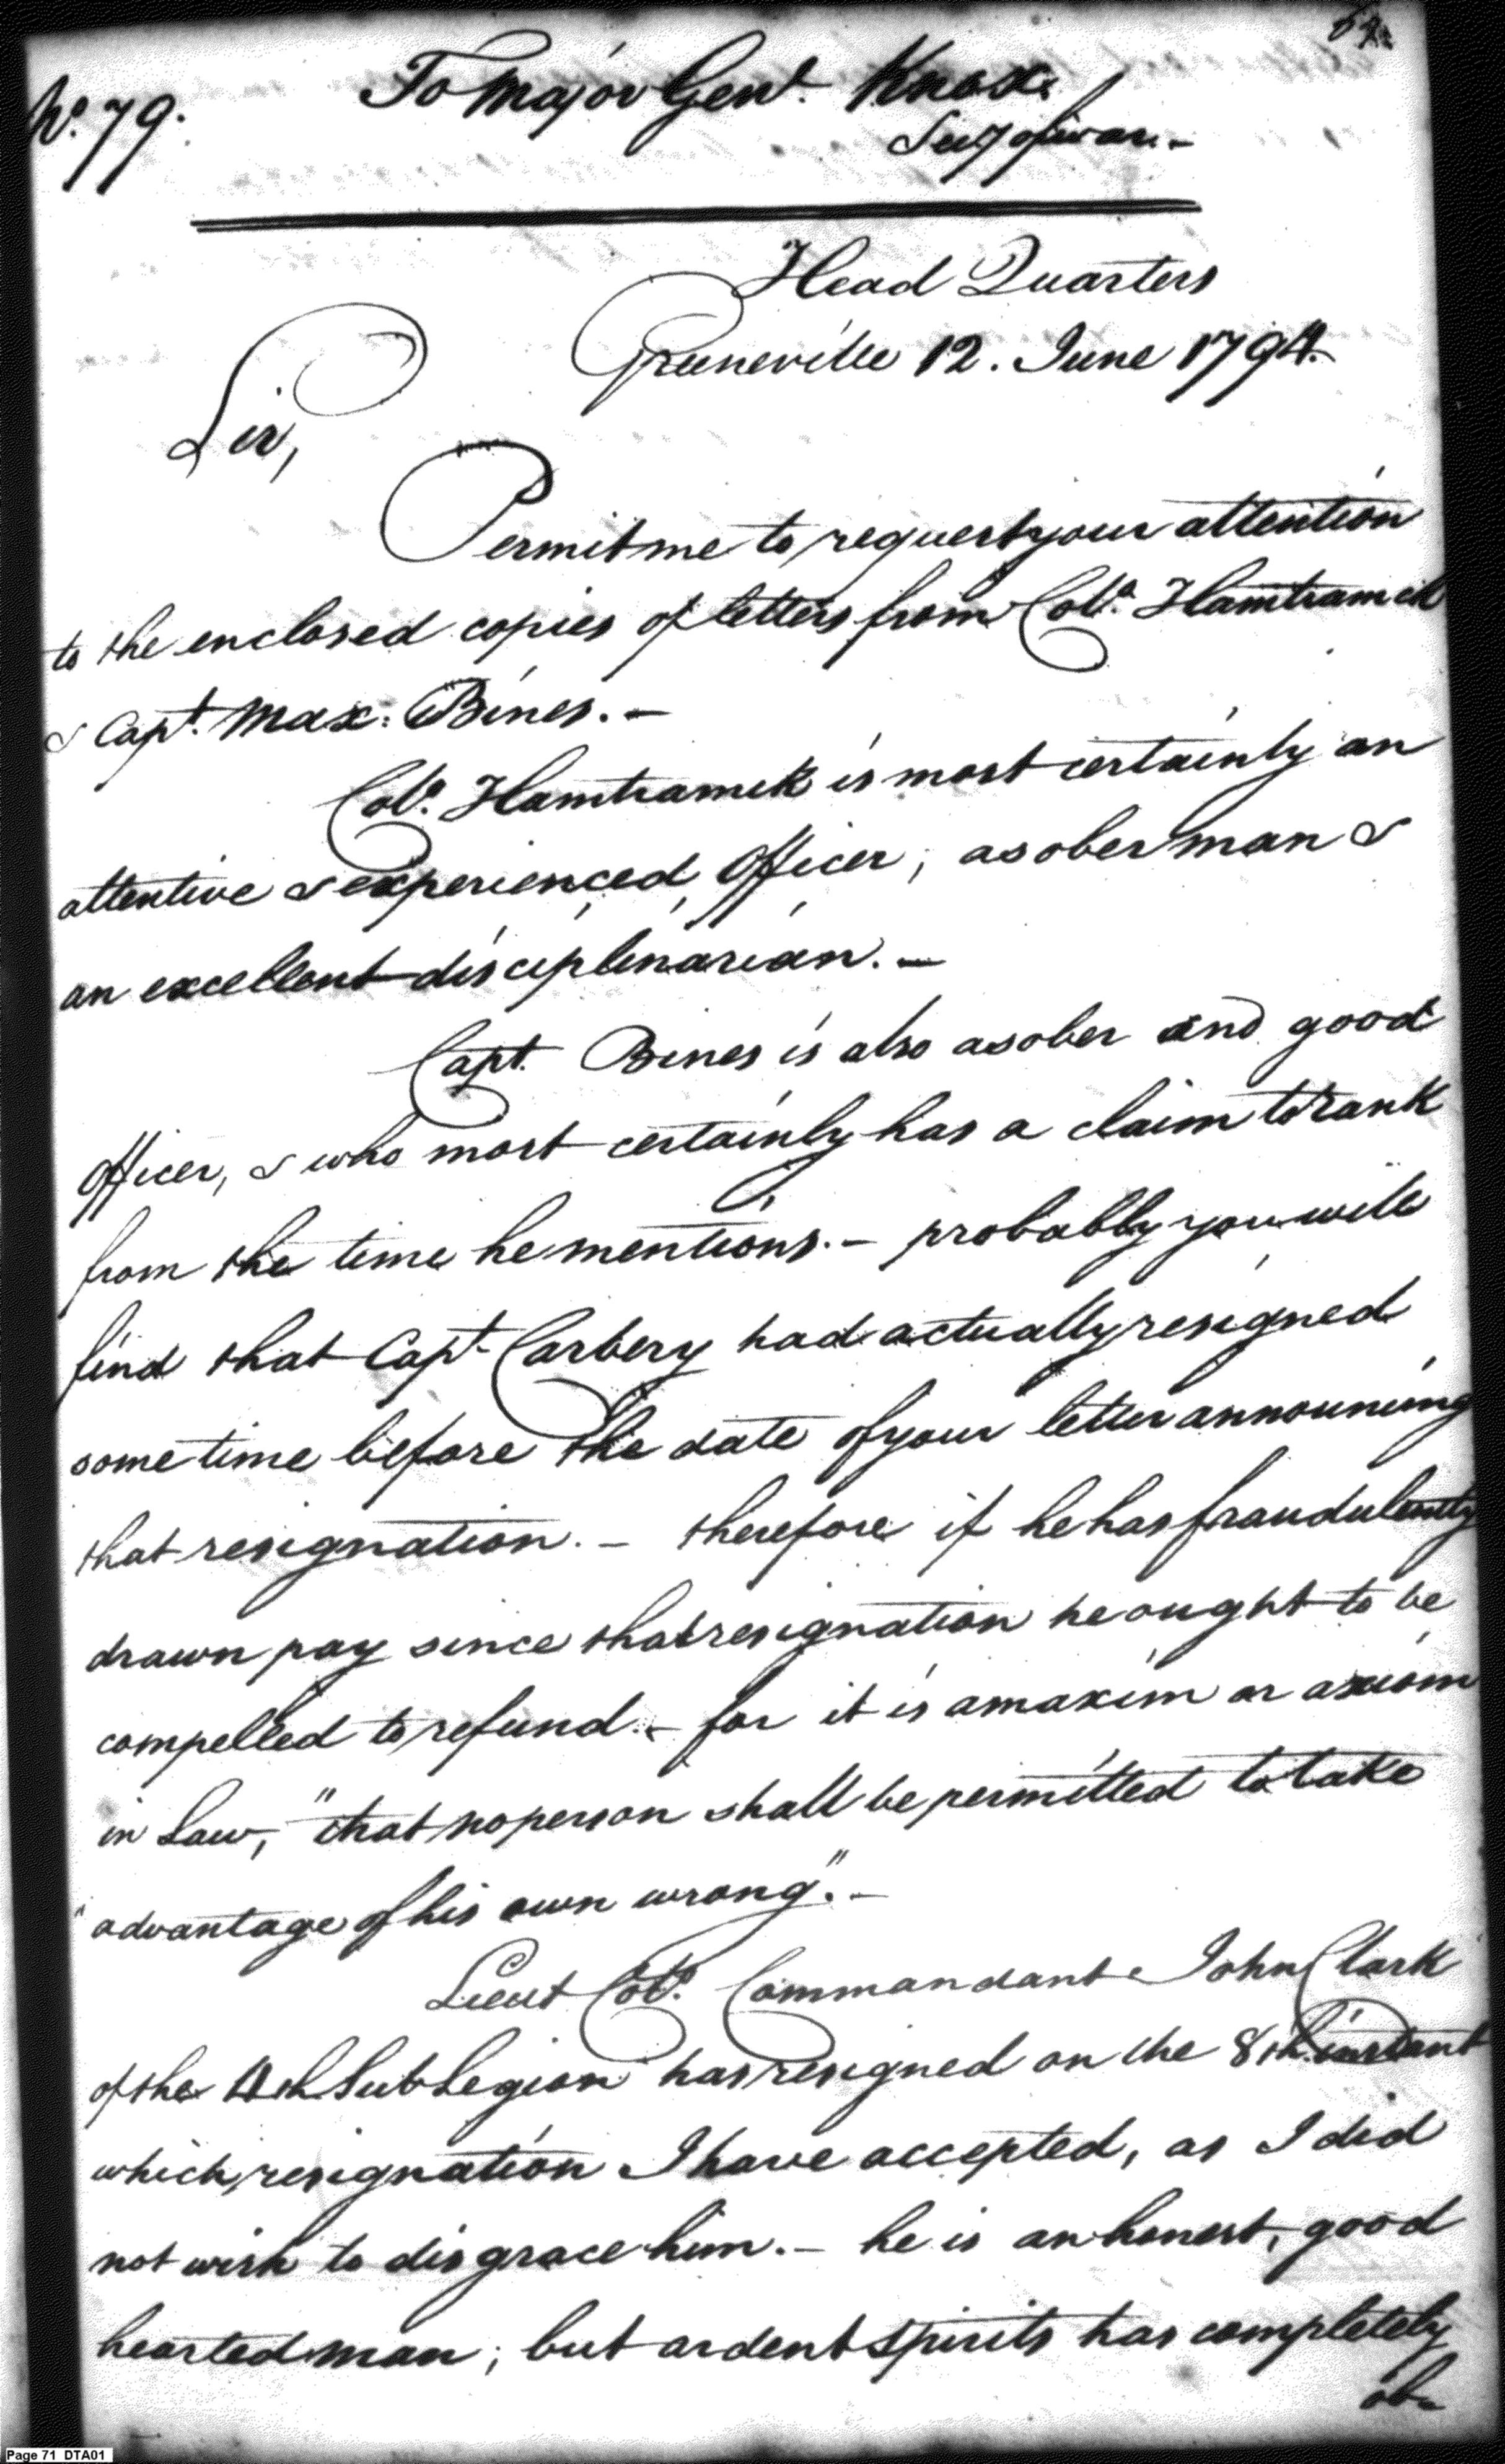 No. 79.
To Major Genl. Knox
Secy of war.-
Head Quarters
Greeneville 12. June 1794.
Sir,
Permit me to request your attention
to the enclosed copies of letters from Colo. Hamtramck
& Capt. Max: Bines. -
Colo. Hamtramck is most certainly an
attentive & experienced officer; a sober man &
an excellent disciplinarian. -
Capt. Bines is also a sober and good
officer, & who most certainly has a claim to rank
from the time he mentions. - probably you will
find that Capt. Carbery had actually resigned
some time before the date of your letter announcing
that resignation. - therefore if he has fraudulently
drawn pay since that resignation he ought to be
compelled to refund. - for it is a maxim or axiom
in Law, "that no person shall be permitted to take
"advantage of his own wrong". -
Lieut Colo. Commandant John Clark
of the 4th Sub Legion has resigned on the 8th. instant
which resignation I have accepted, as I did
not wish to disgrace him. - he is an honest, good
hearted man; but ardent spirits has completely
ob-
Page 71 DTA01